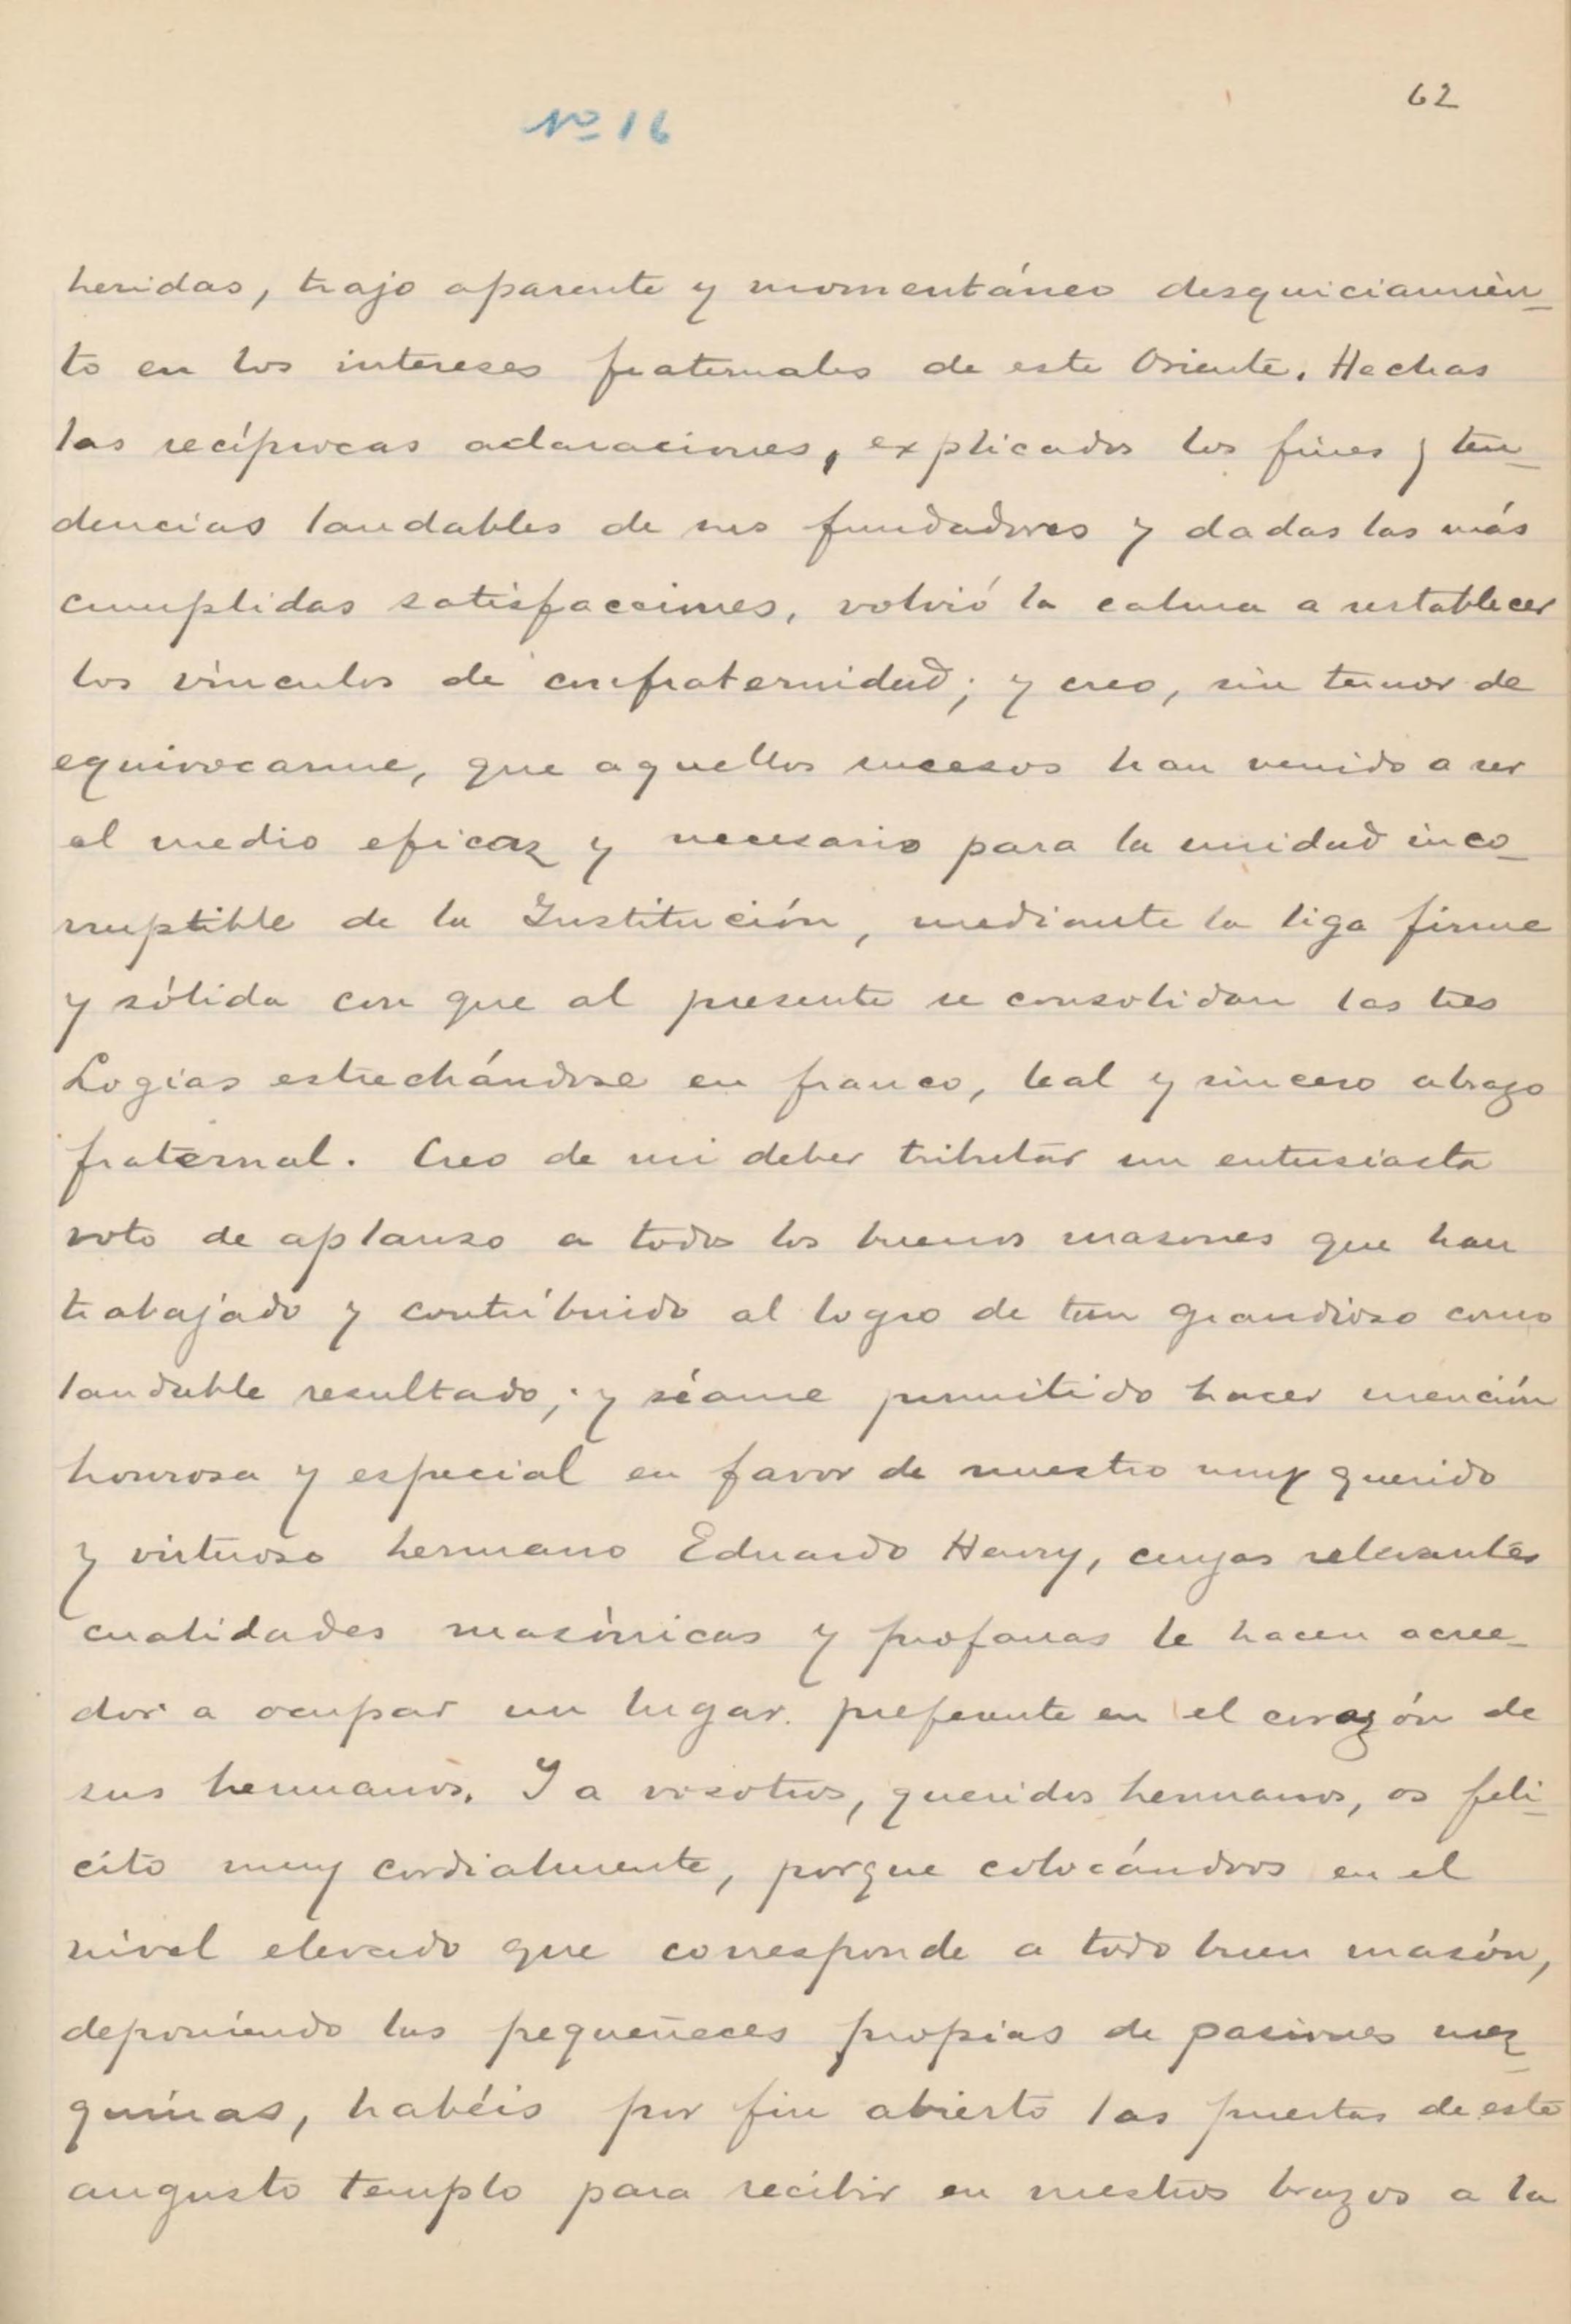 62
Nº 16
heridas, trajo aparente y momentáneo desquiciamien-
to en los intereses fraternales de este Oriente. Hechas
las recíprocas aclaraciones, explicados los fines y ten-
dencias laudables de sus fundadores y dadas las más
cumplidas satisfacciones, volvió la calma a restablecer
los vínculos de confraternidad; y creo, sin temor de
equivocarme, que aquellos sucesos han venido a ser
el medio eficaz y necesario para la unidad inco-
rruptible de la Institución, mediante la liga firme
y sólida con que al presente se consolidan las tres
Logias estrechándose en franco, leal y sincero abrazo
fraternal. Creo de mi deber tributar un entusiasta
voto de aplauso a todos los buenos masones que han
trabajado y contribuido al logro de tan grandioso como
laudable resultado; y séame permitido hacer mención
honrosa y especial en favor de nuestro muy querido
y virtuoso hermano Eduardo Henry, cuyas relevantes
cualidades masónicas y profanas le hacen acree-
dor a ocupar un lugar preferente en el corazón de
sus hermanos. Y a vosotros, queridos hermanos, os feli-
cito muy cordialmente, porque colocándoos en el
nivel elevado que corresponde a todo buen masón,
deponiendo las pequeñeces propias de pasiones mez-
quinas, habéis por fin abierto las puertas de este
augusto templo para recibir en nuestros brazos a la